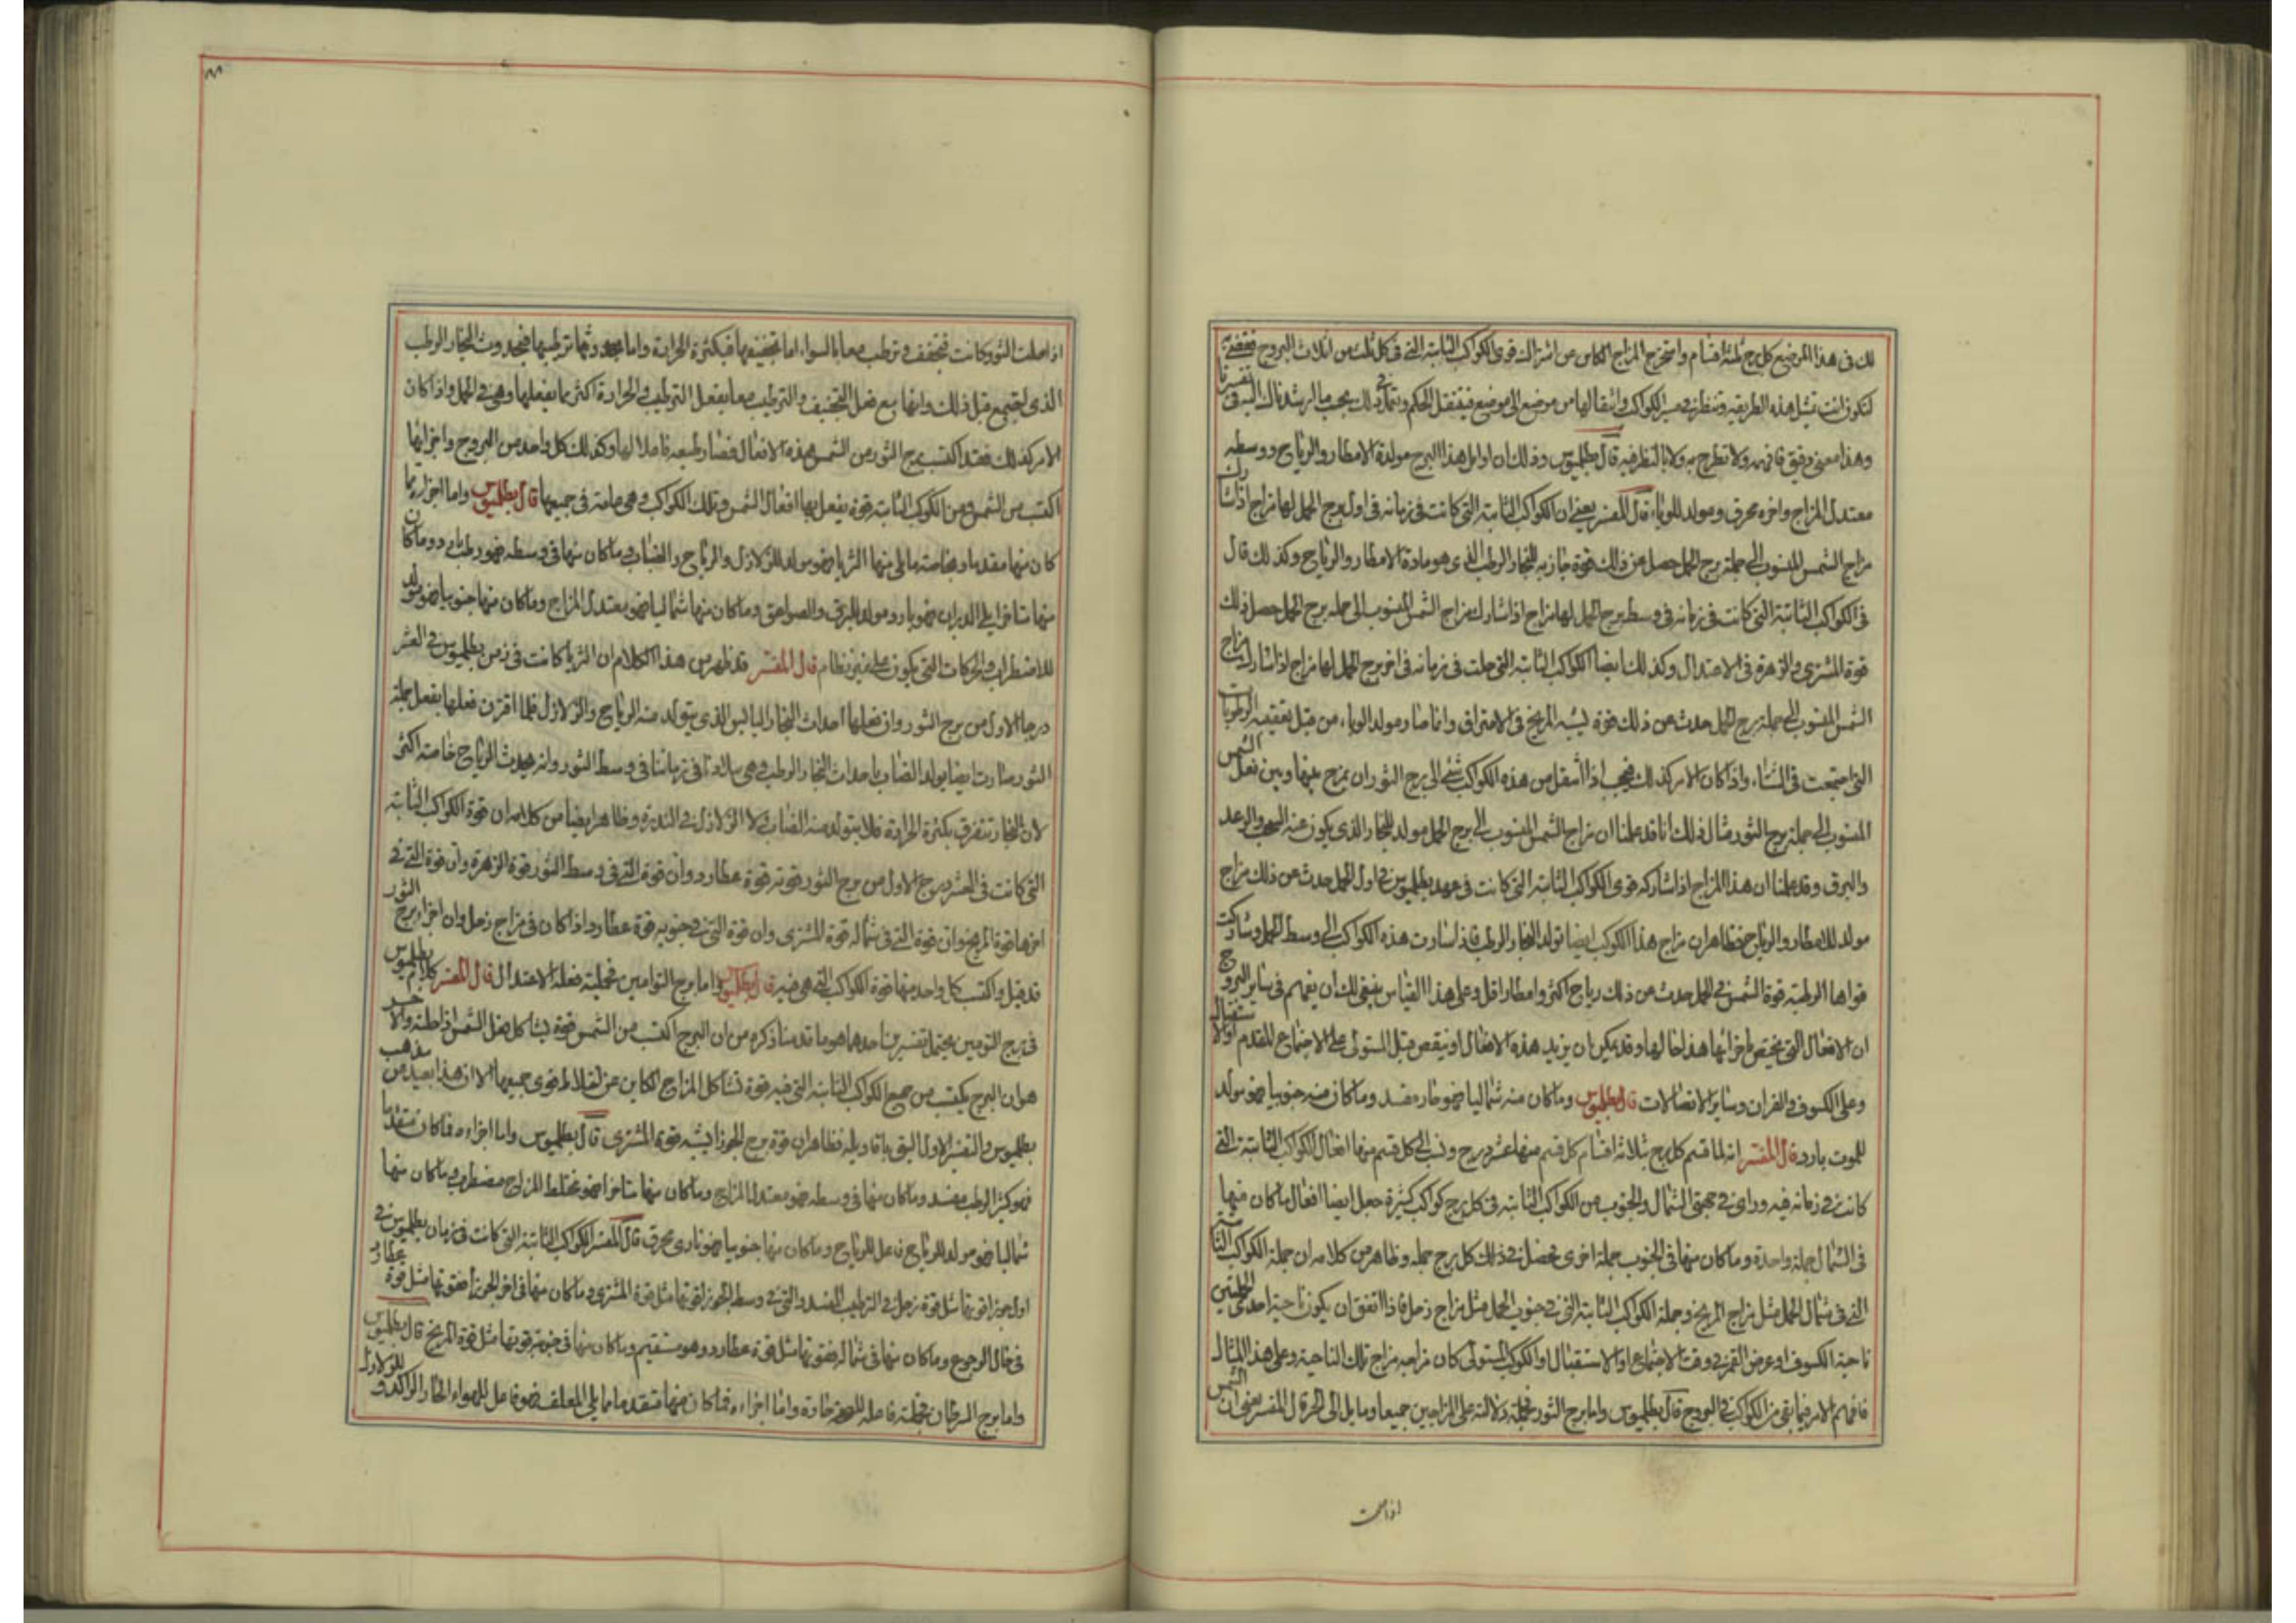 لك فى هذا الموضع كل برج ثلثة اقسام واستخرج المزاج الكاين من اشتراك قوى الكواكب الثابتة التى فى كل ثلث من اثلاث البروج
لتكون انت تمتثل هذه الطريقة وتنظر فى مسير الكواكب وانتقالها من موضع الى موضع فينتقل الحكم
وهذا معنى دقيق فافهمه ولا تطرح به ولا بالنظر فيه قال بطلميوس وذلك ان اوايل هذا البرج مولدة الامطار والرياح ووسطه
معتدل المزاج واخره محرق ومولد للوباء قال المفسر يعنى ان الكواكب الثابتة التى كانت فى زمانه فى اول برج الحمل لها مزاج اذا شارك
مزاج الشمس المنسوب الى جملة برج الحمل حصل من ذلك قوة جاذبه للبخار الرطب الذى هو مادة الامطار والرياح وكذلك قال
فى الكواكب الثابتة التى كانت فى زمانه فى وسط برج الحمل لها مزاج اذا شارك مزاج الشمس المنسوب الى جملة برج الحمل حصل ذلك
قوة المشترى والزهرة فى الاعتدال وكذلك ايضا الكواكب الثابتة التى حلت فى زمانه فى اخر برج الحمل لها مزاج اذا شارك مزاج
الشمس المنسوب الى جملة برج الحمل حدث من ذلك قوة يشبه المريخ فى الاحتراق وانما صار مولد الوباء من قبل الرطوبات
التى اجتمعت فى الشتاء واذا كان الامر كذلك فيجب اذا انتقل من هذه الكواكب شئ الى برج الثور ان يمزج بينها وبين فعل الشمس
المنسوب الى جملة برج الثور مثال ذلك انا قد علمنا ان مزاج الشمس المنسوب الى برج الحمل مولد للبخار الذى يكون عنه السحب والرعد
والبرق وقد علمنا ان هذا المزاج اذا شاركه قوى الكواكب الثابتة التى كانت فى عهد بطلميوس فى اول الحمل حدث من ذلك مزاج
مولد للامطار والرياح فظاهر ان مزاج هذا الكوكب ايضا تولد البخار الرطب فاذا سارت هذه الكواكب الى وسط الحمل وشاركت
قواها الرطبة قوة الشمس فى الحمل حدث من ذلك رياح اكثر وامطار اقل وعلى هذا القياس ينبغى لك ان يفهم فى ساير البروج
ان الافعال التى يختص باجزائها هذا حالها وقد يمكن ان يزيد هذه الافعال او ينقص قبل المستولى على الاجتماع المقدم او الاستقبال
وعلى الكسوف والقران وساير الاتصالات قال بطلميوس وما كان منه شماليا فهو حار مفسد وما كان منه جنوبيا فهو مولد
للموت بارد قال المفسر انه لما قسم كل برج بثلاثة اقسام كل قسم منها عشر درج ونسب الى كل قسم منها افعال الكواكب الثابتة التى
كانت فى زمانه فيه وراى فى جهتى الشمال والجنوب من الكواكب الثابتة فى كل برج كواكب كثيرة جعل ايضا افعال ما كان منها
فى الشمال جملة واحدة وما كان منها فى الجنوب جملة اخرى تحصل فى ذلك كل برج جملة وظاهر من كلامه ان جملة الكواكب الثابتة
التى فى شمال الحمل مثل مزاج المريخ وجملة الكواكب الثابتة التى فى جنوب الحمل مثل مزاج زحل فاذا اتفق ان يكون ناحية احدى الجملتين
ناحية الكسوف او عرض القمر فى وقت الاجتماع او الاستقبال او الكوكب المستولى كان مزاجه مزاج تلك الناحية وعلى هذا المثال
فافهم الامر فيما بقى من الكواكب فى البروج قال بطلميوس واما برج الثور فجملته دلالته على المزاجين جميعا ومايل الى الحر قال المفسر يعنى ان الشمس
اذا حلت
اذا حلت الثور كانت تجفف وترطب معا بالسواء اما تجفيفها فبكثرة الحرارة واما ترطيبها فبحدوث البخار الرطب
الذى اجتمع قبل ذلك وانها مع فعل التجفيف والترطيب معا يفعل الترطيب والحرارة اكثر مما يفعلها وهى فى الحمل واذا كان
الامر كذلك فقد اكتسب برج الثور من الشمس هذه الافعال فصار طبيعه فاعلا لها وكذلك كل واحد من البروج واجزائها
اكتسب من الشمس ومن الكواكب الثابتة قوة يفعل بها افعال الشمس وتلك الكواكب وهى عامة فى جميعها قال بطلميوس واما اجزاءه فما
كان منها متقدما وبخاصة ما يلى منها الثريا فهو مولد للزلازل والرياح والضباب وما كان منها فى وسطه فهو رطب بارد وما كان
منها متاخرا يلى الدبران فهو بارد ومولد للبرق والصواعق وما كان منها شماليا فهو معتدل المزاج وما كان منها جنوبيا فهو مولد
للاضطراب والحركات التى يكون على غير نظام قال المفسر قد ظهر من هذا الكلام ان الثريا كانت فى زمن بطلميوس فى العشر
درجا الاول من برج الثور وان فعلها احداث البخار اليابس الذى يتولد منه الرياح والزلازل فلما اقترن فعلها بفعل جملة
الثور صارت ايضا يولد الضباب باحداث البخار الرطب وهى فى زماننا فى وسط الثور ولذ يحدث الرياح خاصة اكثر
لان البخار تتفرق بكثرة الحرارة فلا يتولد منه الضباب ولا الزلازل فى الندرة وظاهر ايضا من كلامه ان قوة الكواكب الثابتة
التى كانت فى العشر درج الاول من برج الثور قوته قوة عطارد وان قوة التى فى وسط الثور قوة الزهرة وان قوة التى فى
اخرها قوة المريخ وان قوة التى فى شماله قوة المشترى وان قوة التى فى جنوبه قوة عطارد اذا كان فى مزاج زحل وان اجزاء برج الثور
قد قبل واكتسب كل واحد منها قوة الكواكب التى هى فيه قال بطلميوس واما برج التوامين فجملته فعله الاعتدال قال المفسر كلام بطلميوس
فى برج التومين يحتمل تفسيرين احدهما هو ما قدمنا ذكره من ان البرج اكتسب من الشمس قوة يشاكل فعل الشمس اذا حلته والاخر
هو ان البرج يكتسب من جميع الكواكب الثابتة التى فيه قوة تشاكل المزاج الكاين عن اختلاط قوى جميعها الا ان هذا بعيد من مذهب
بطلميوس والتفسير الاول اليق باقاويله فظاهر ان قوة برج الجوزا يشبه قوة المشترى قال بطلميوس واما اجزاءه فما كان متقدما
فهو كثير الرطب مفسد وما كان منها فى وسطه فهو معتدل المزاج وما كان منها متاخرا فهو مختلط المزاج مضطرب وما كان منها
شماليا فهو مولد للرياح وما كان منها جنوبيا فهو نارى محرق قال المفسر الكواكب الثابتة التى كانت فى زمان بطلميوس فى
اول جوزا قوتها مثل قوة زحل فى الترطيب المفسد والتى فى وسط الجوزا قوتها مثل قوة المشترى وما كان منها فى اخر الجوزا فقوتها مثل قوة عطارد
فى حال الرجوع وما كان منها فى شماله فقوتها مثل قوة عطارد وهو مستقيم وما كان منها فى جنوبه قوتها مثل قوة المريخ قال بطلميوس
واما برج السرطان فجملته حارة واما اجزاءه فما كان منها متقدما مما يلى المعلف فهو فاعل للهواء الحار الراكد و للزلازل